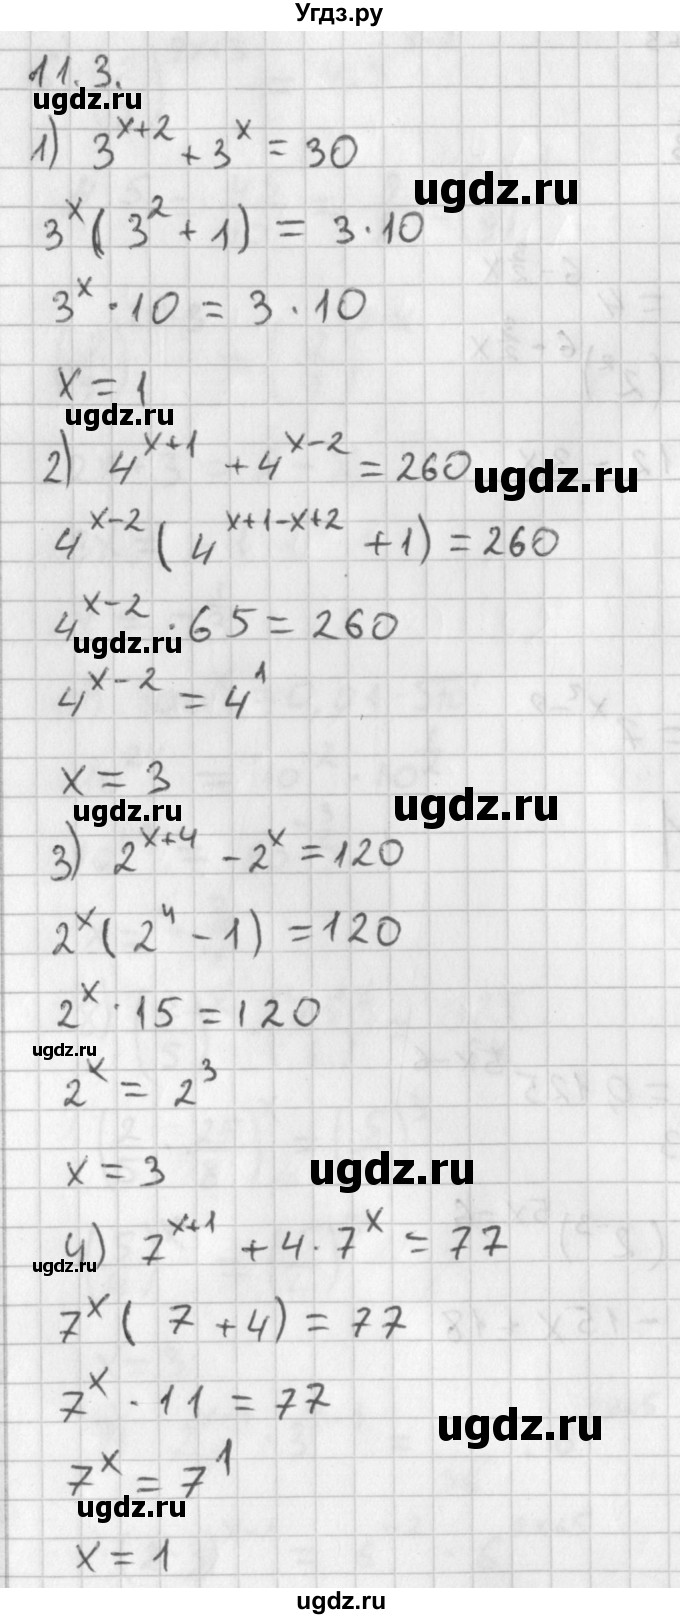 Угдз.ру
11.3.
ugdz.ru
1) 3^{x+2} + 3^x = 30
ugdz.ru
3^x (3^2 + 1) = 3 · 10
3^x · 10 = 3 · 10
x = 1
ugdz.ru
2) 4^{x+1} + 4^{x-2} = 260
ugdz.ru
4^{x-2} (4^{x+1-x+2} + 1) = 260
4^{x-2} · 65 = 260
ugdz.ru
4^{x-2} = 4^1
x = 3
ugdz.ru
ugdz.ru
3) 2^{x+4} - 2^x = 120
2^x (2^4 - 1) = 120
2^x · 15 = 120
ugdz.ru
2^x = 2^3
x = 3
ugdz.ru
4) 7^{x+1} + 4 · 7^x = 77
ugdz.ru
7^x (7 + 4) = 77
7^x · 11 = 77
ugdz.ru
7^x = 7^1
ugdz.ru
x = 1
ugdz.ru